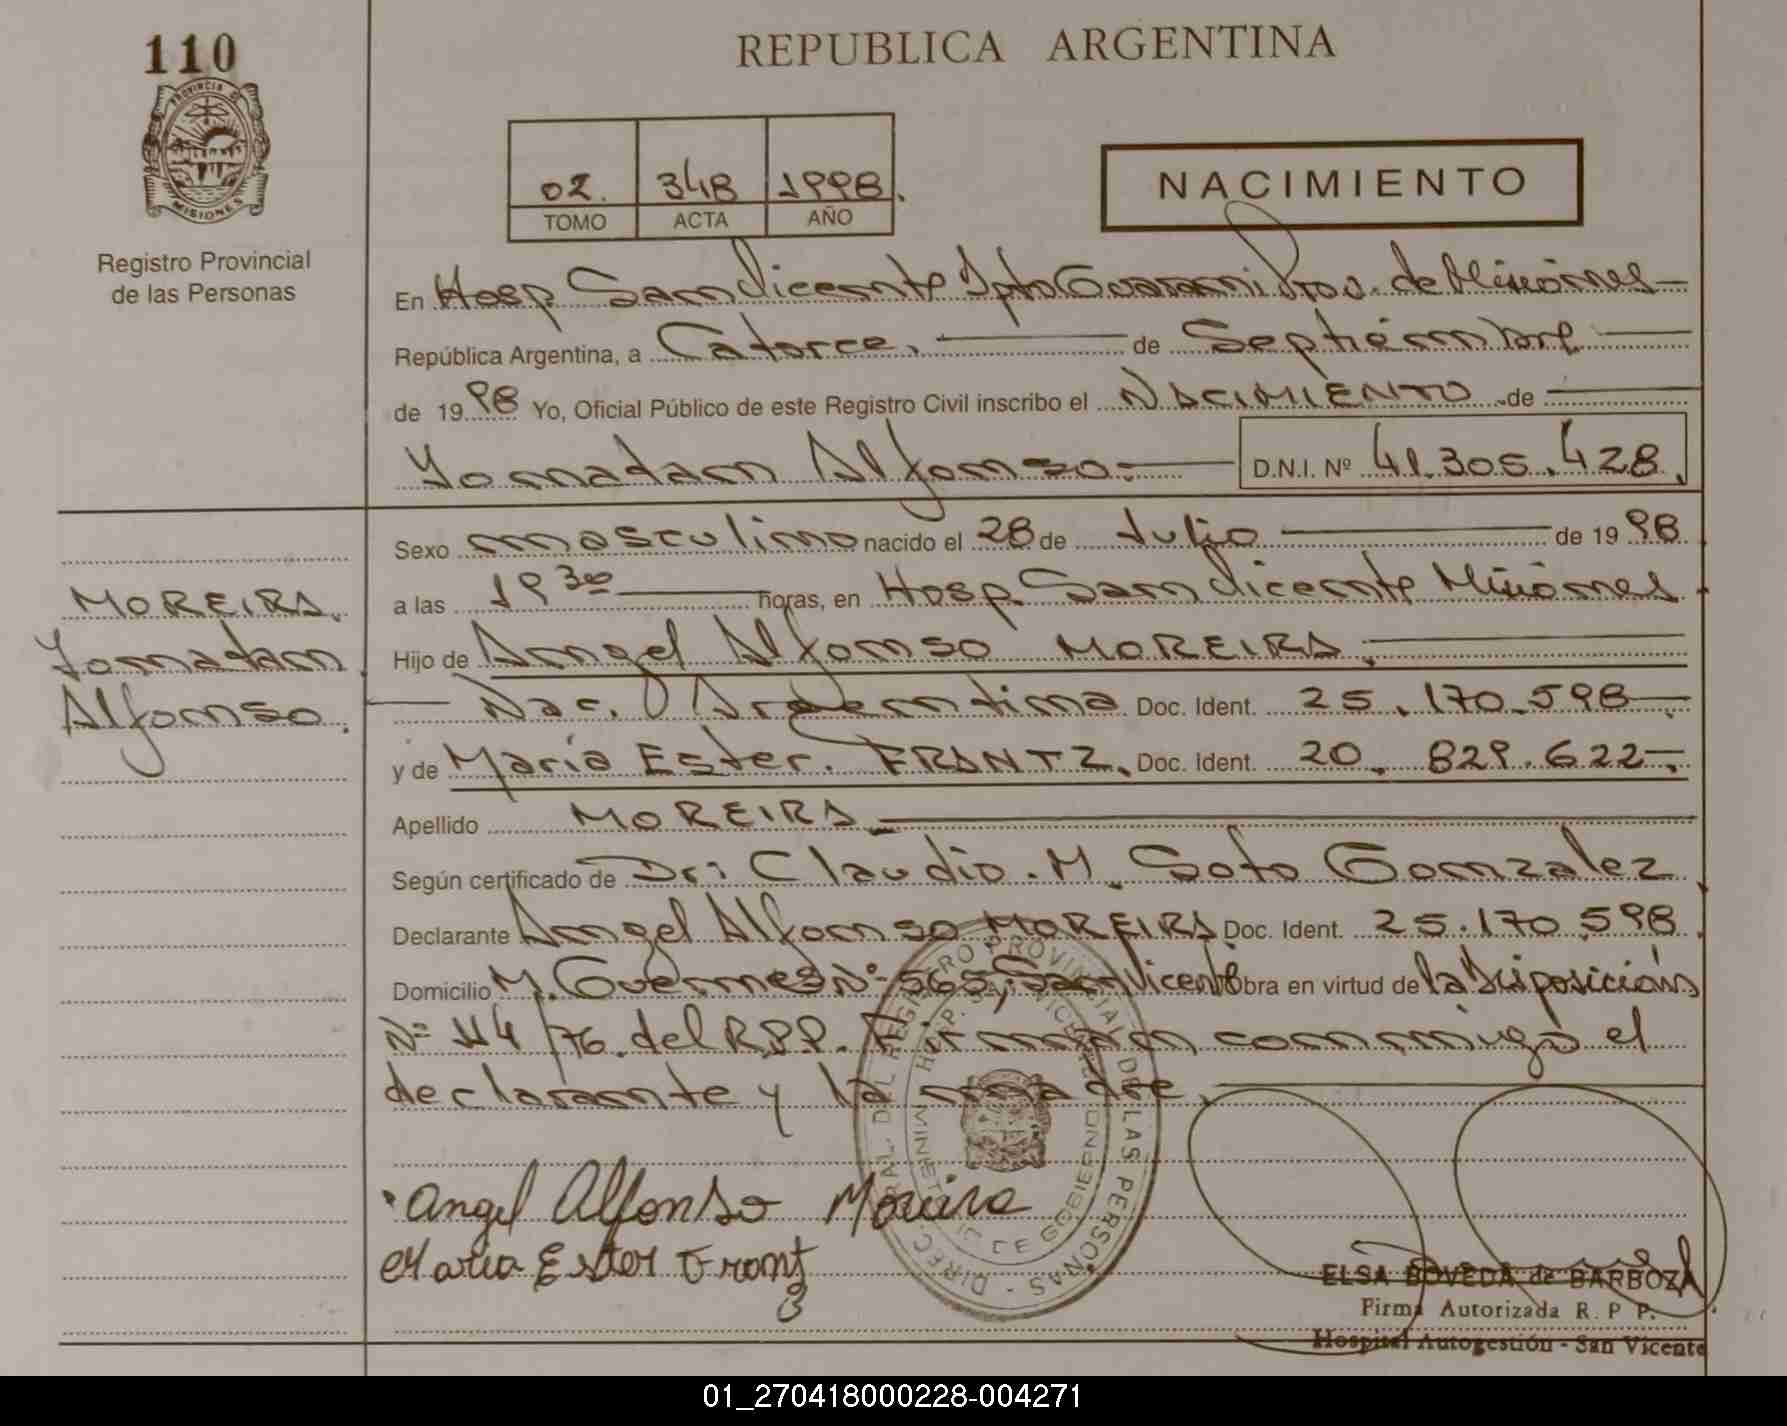 110
PROVINCIA DE
MISIONES
Registro Provincial
de las Personas
REPUBLICA ARGENTINA
02. 348 1998.
TOMO ACTA AÑO
NACIMIENTO
En Hosp San Vicente Dpto Guarani Prov. de Misiones
República Argentina, a Catorce. de Septiembre
de 1998 Yo, Oficial Público de este Registro Civil inscribo el NACIMIENTO de
Yonadam Alfonso. D.N.I. Nº 41.305.428.
Sexo masculino nacido el 28 de Julio de 1998
a las 19 30 horas, en Hosp. San Vicente Misiones
MOREIRA.
Yonadam
Alfonso.
Hijo de Angel Alfonso MOREIRA.
Nac. Argentina Doc. Ident. 25.170.598
y de Maria Ester. FRANTZ. Doc. Ident. 20.829.622
Apellido MOREIRA
Según certificado de Dr: Claudio. M. Soto Gonzalez
Declarante Angel Alfonso MOREIRA Doc. Ident. 25.170.598
Domicilio M. Guemes Nº 565, San Vicente Obra en virtud de la Disposición
Nº 114/76. del R.P.P. Firman conmigo el
declarante y la madre.
Angel Alfonso Moreira
Maria Ester Frantz
DIREC RAL DEL REGISTRO PROVINCIAL DE LAS PERSONAS
HOSP. SAN VICENTE
MINISTE DE GOBIERNO
ELSA BOVEDA de BARBOZA
Firma Autorizada R. P. P.
Hospital Autogestión - San Vicente
01_270418000228-004271